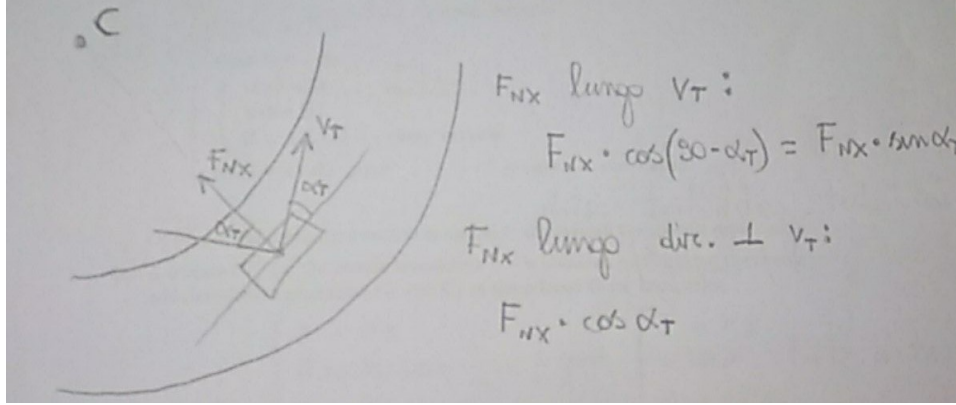 C
V_T
F_NX
α_T
α_T
F_NX lungo V_T :
F_NX · cos(90-α_T) = F_NX · sin α_T
F_NX lungo dir. ⊥ V_T :
F_NX · cos α_T